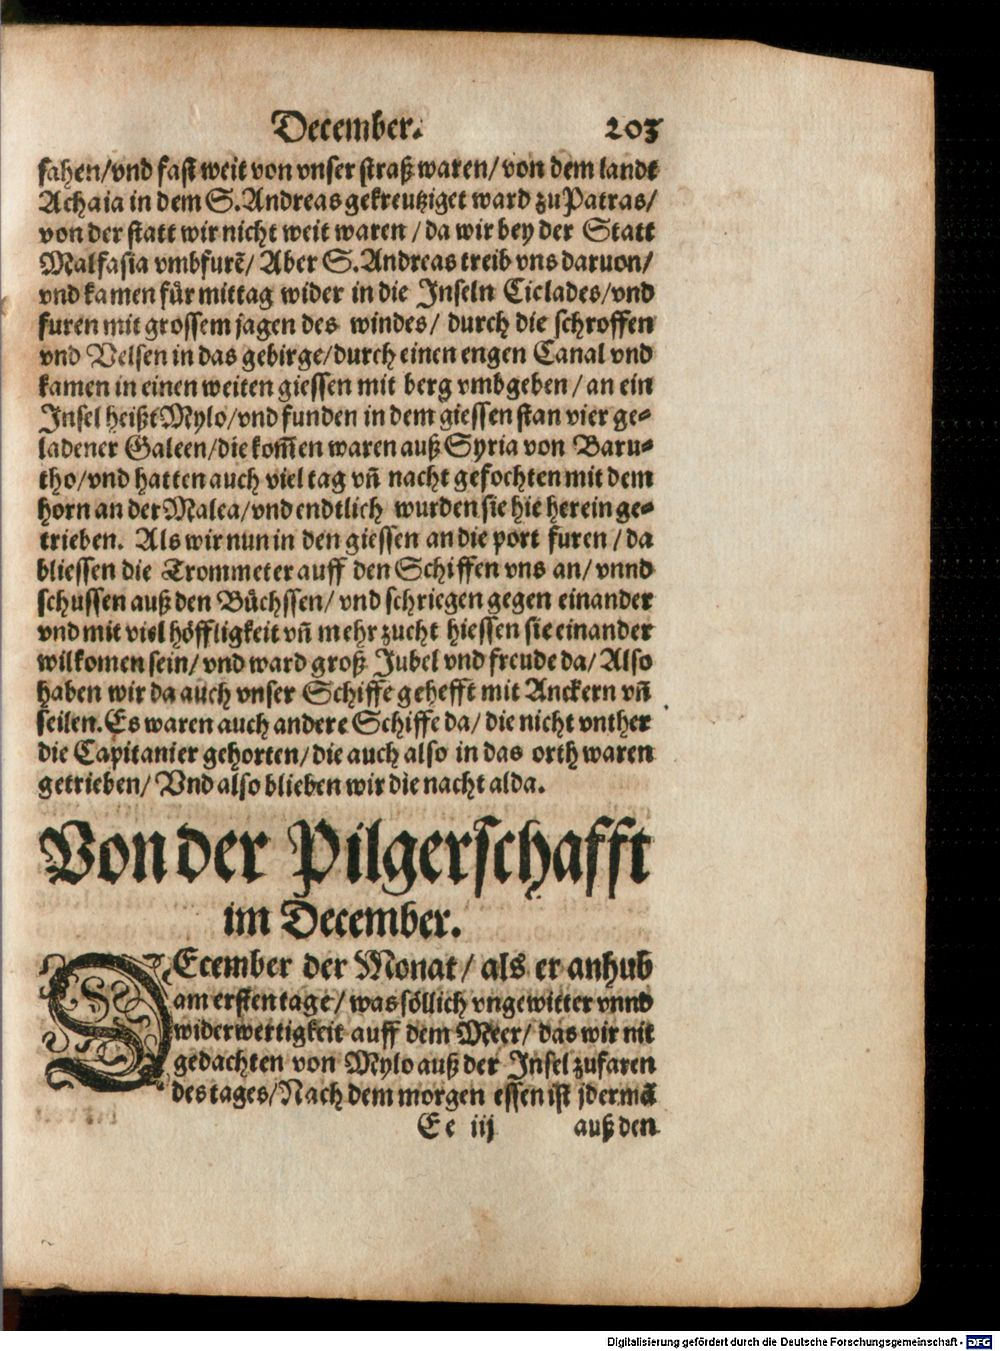 December. 203
sahen/vnd fast weit von vnser straß waren/von dem landt
Achaia in dem S. Andreas gekreutziget ward zu Patras/
von der statt wir nicht weit waren/da wir bey der Statt
Malfasia vmbfurẽ/Aber S. Andreas treib vns daruon/
vnd kamen für mittag wider in die Inseln Ciclades/vnd
furen mit grossem jagen des windes/durch die schroffen
vnd Velsen in das gebirge/durch einen engen Canal vnd
kamen in einen weiten giessen mit berg vmbgeben/an ein
Insel heißt Mylo/vnd funden in dem giessen stan vier ge=
ladener Galeen/die kom̃en waren auß Syria von Baru=
tho/vnd hatten auch viel tag vñ nacht gefochten mit dem
horn an der Malea/vnd endtlich wurden sie hie herein ge=
trieben. Als wir nun in den giessen an die port furen/da
bliessen die Trommeter auff den Schiffen vns an/vnnd
schussen auß den Büchssen/vnd schriegen gegen einander
vnd mit viel höffligkeit vñ mehr zucht hiessen sie einander
wilkomen sein/vnd ward groß Jubel vnd freude da/Also
haben wir da auch vnser Schiffe gehefft mit Anckern vñ
seilen. Es waren auch andere Schiffe da/die nicht vnther
die Capitanier gehorten/die auch also in das orth waren
getrieben/Vnd also blieben wir die nacht alda.
Von der Pilgerschafft
im December.
DEcember der Monat/als er anhub
am ersten tage/was söllich vngewitter vnnd
widerwertigkeit auff dem Meer/das wir nit
gedachten von Mylo auß der Insel zufaren
des tages/Nach dem morgen essen ist jdermã
Ee iij auß den
Digitalisierung gefördert durch die Deutsche Forschungsgemeinschaft - DFG